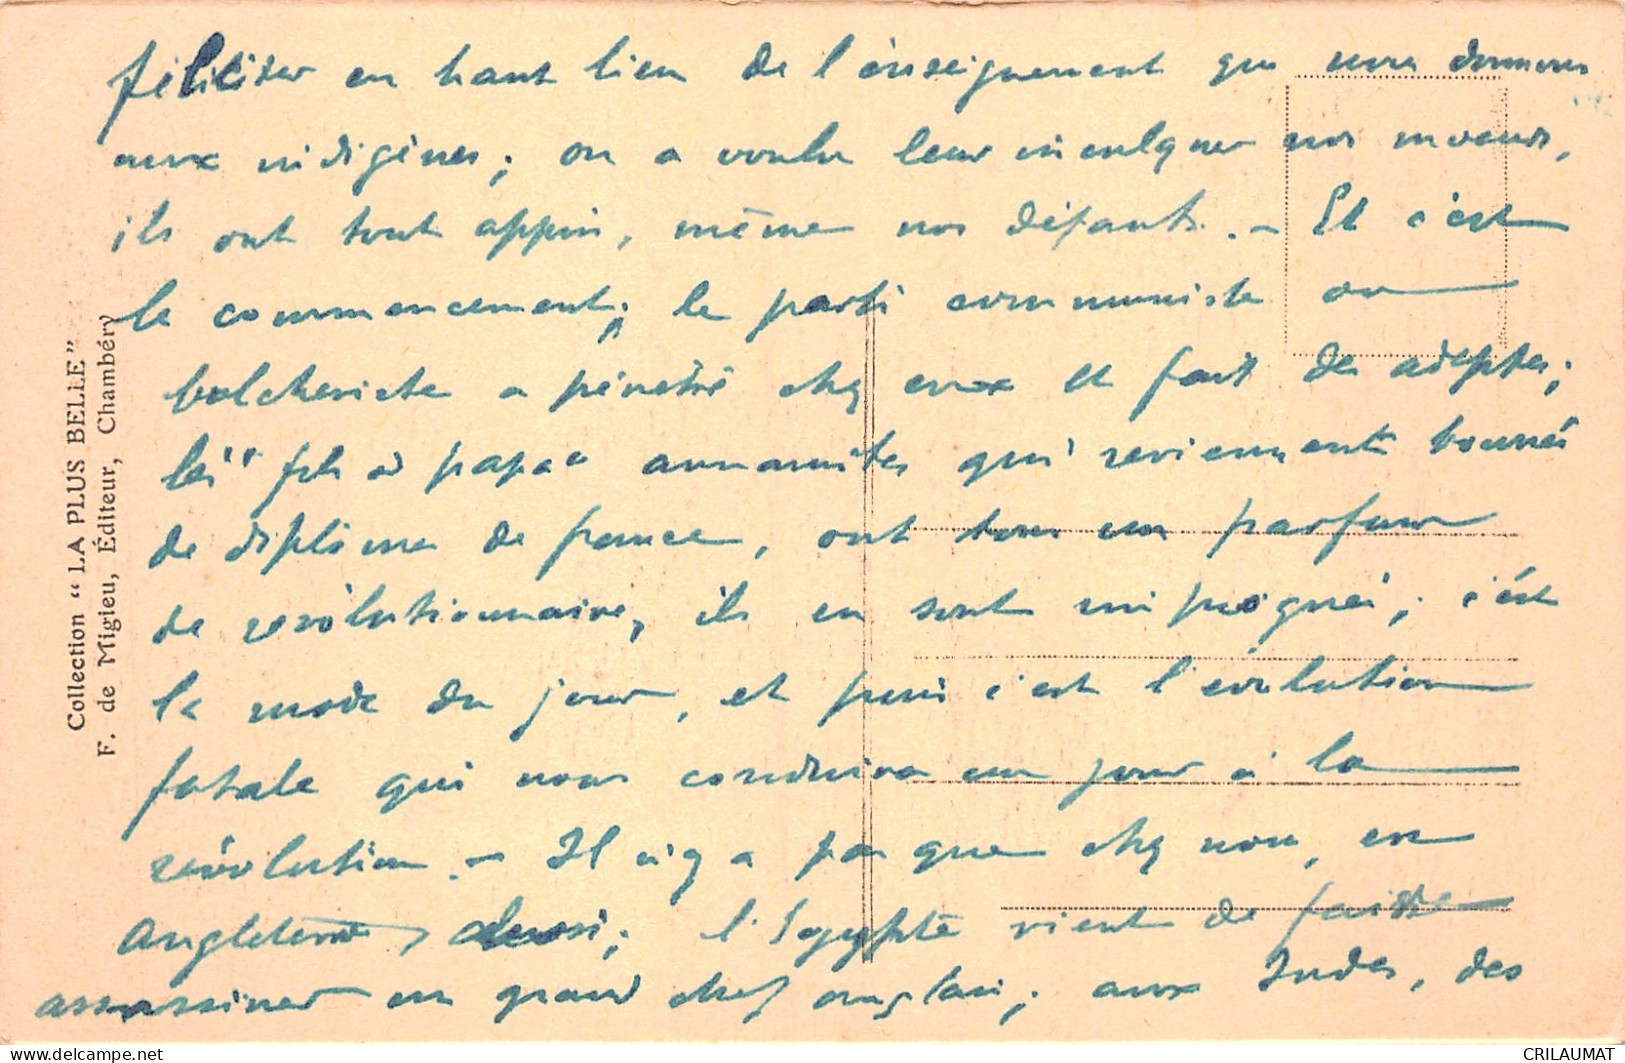 féliciter en haut lieu de l'enseignement que nous donnons
aux indigènes; on a voulu leur inculquer nos moeurs,
ils ont tout appris, même nos défauts. - Et c'est
le commencement; le parti communiste ou
bolcheviste a pénétré chez eux et fait des adeptes;
les "fils à papa" annamites qui reviennent bourrés
de diplômes de france, ont tous un parfum
de révolutionnaire, ils en sont imprégnés; c'est
la mode du jour, et puis c'est l'évolution
fatale qui nous conduira un jour à la
révolution. - Il n'y a pas que chez nous, en
Angleterre, aussi; l'Egypte vient de faire
assassiner un grand chef anglais; aux Indes, des
Collection "LA PLUS BELLE"
F. de Migieu, Éditeur, Chambéry
CRILAUMAT